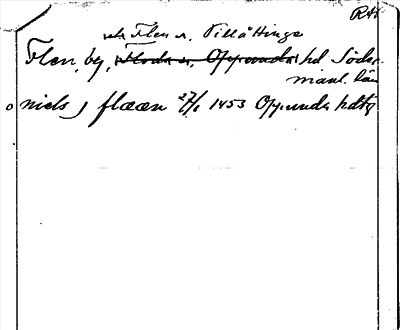 RA.
och Flen s. Villåttinge
Flen, by, Floda s, Oppunda hd Söder-
manl. län
niels j flææn 27/1 1453 Oppunda hdtg